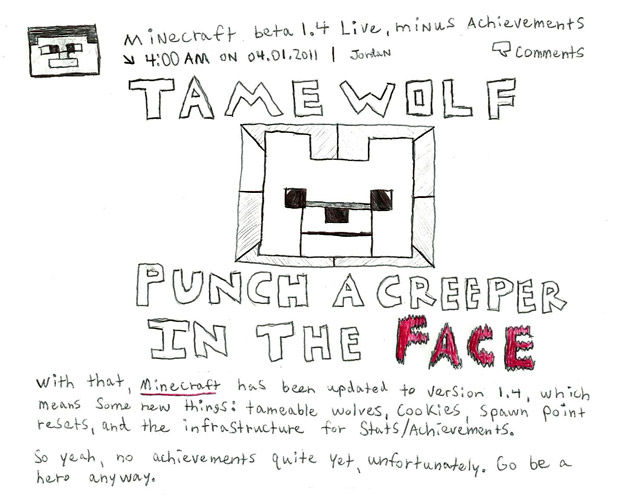 Minecraft beta 1.4 Live, minus Achievements
↘ 4:00 AM ON 04.01.2011 | Jordan
Comments
TAME WOLF
PUNCH A CREEPER
IN THE FACE
With that, Minecraft has been updated to version 1.4, which
means some new things: tameable wolves, cookies, spawn point
resets, and the infrastructure for Stats/Achievements.
So yeah, no achievements quite yet, unfortunately. Go be a
hero anyway.